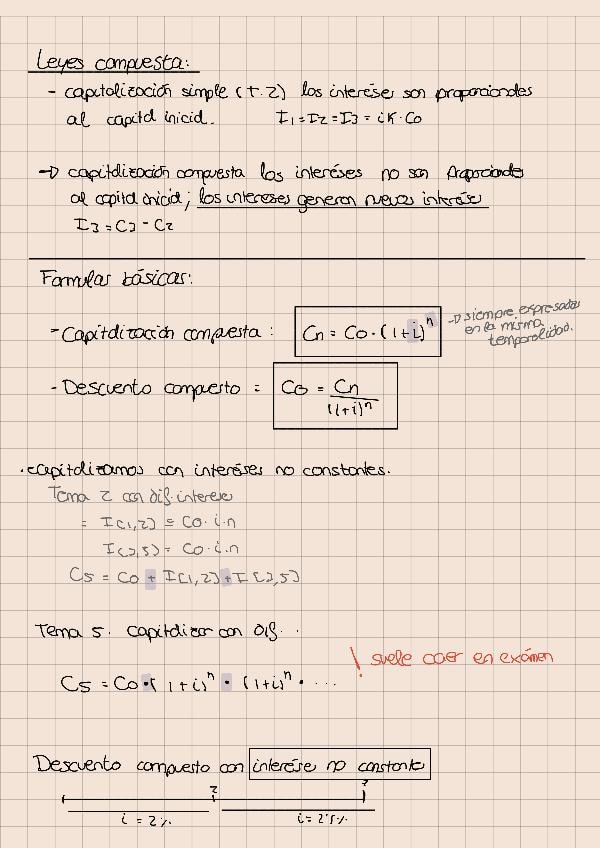 Leyes compuesta:
- capitalización simple (t.2) los interéses son proporcionales
al capital inicial. I1=I2=I3= iK·Co
→ capitalización compuesta los interéses no son proporcionales
al capital inicial; los intereses generan nuevos interése
I3 = C3 - C2
Formulas básicas:
- Capitalización compuesta: Cn = Co·(1+i)^n → siempre expresadas
en la misma
temporalidad.
- Descuento compuesto = Co = Cn / (1+i)^n
· capitalizamos con interéses no constantes.
Tema 2 con dif. interese
= I(1,2) = Co·i·n
I(2,5) = Co·i·n
C5 = Co + I[1,2] + I[2,5]
Tema 5. Capitalizar con dif.
! suele caer en exámen
C5 = Co·(1+i)^n · (1+i)^n · ...
Descuento compuesto con interése no constante
2 7
i = 2% i = 2'5%